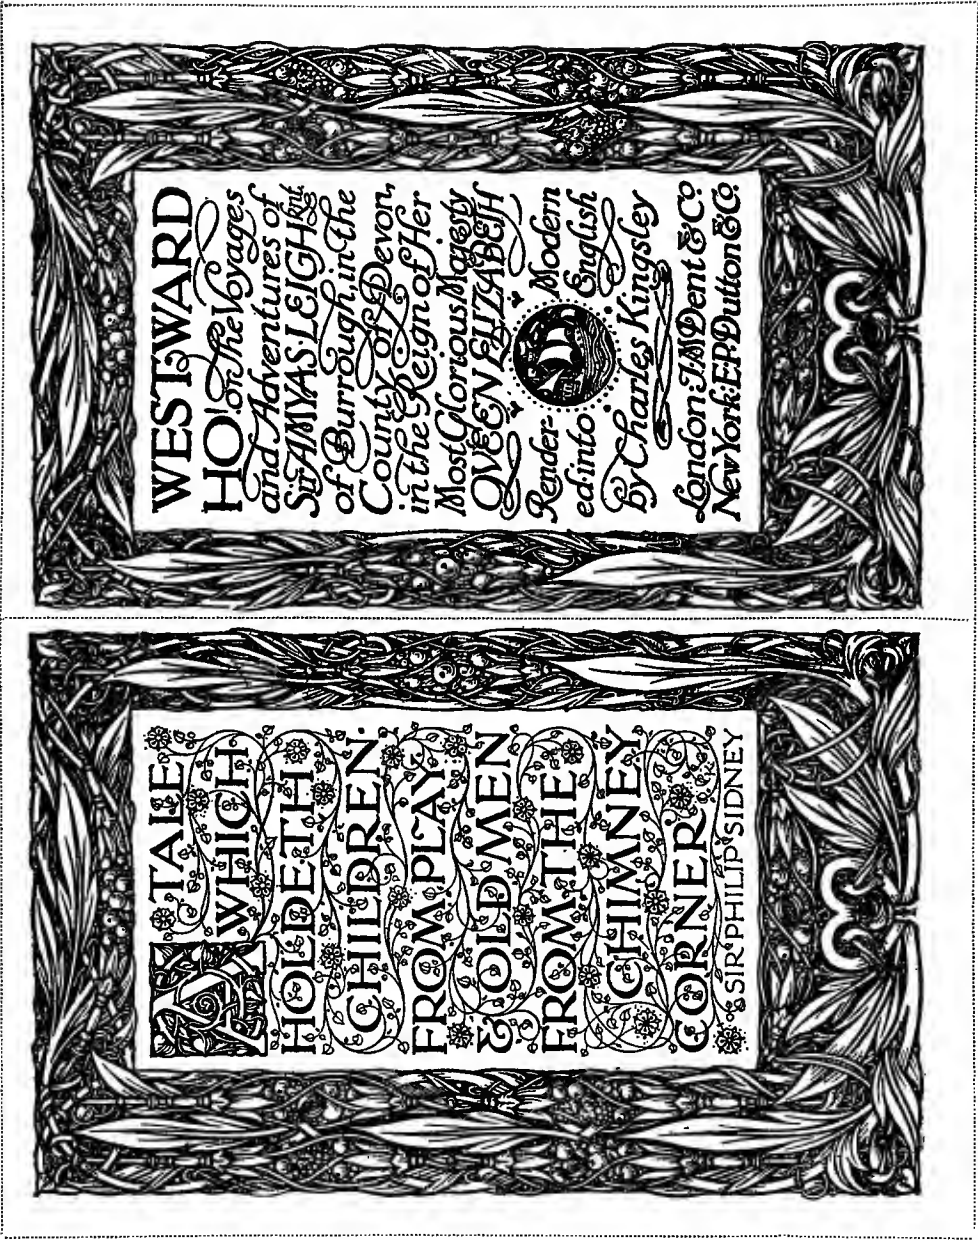 A TALE
WHICH
HOLDETH
CHILDREN
FROM PLAY
& OLD MEN
FROM THE
CHIMNEY
CORNER
SIR PHILIP SIDNEY
WESTWARD
HO! or The Voyages
and Adventures of
Sir AMYAS·LEIGH Knt.
of Burrough, in the
County of Devon,
in the Reign of Her
Most Glorious Majesty
QVEEN ELIZABETH
Render- Modern
ed·into English
by Charles Kingsley
London: J·M·Dent & Co
New York: E·P·Dutton & Co.